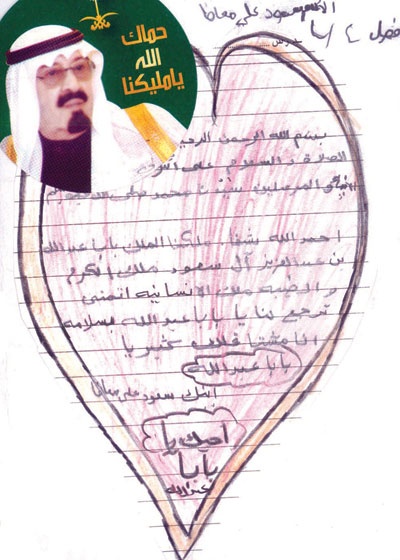 حماك
الله
يا مليكنا
سعود علي معافا
بسم الله الرحمن الرحيم
الصلاة و السلام على أشرف
المرسلين سيدنا محمد صلى الله
احمد الله بشفاء مليكنا الملك بابا عبدالله
بن عبدالعزيز آل سعود ملك الكرم
و الطيبه ملك الانسانيه اتمنى
ترجع لنا يا بابا عبدالله بسلامه
انا مشتاق لك كثير يا
بابا عبدالله
ابنك سعود علي
احبك يا
بابا
عبدالله